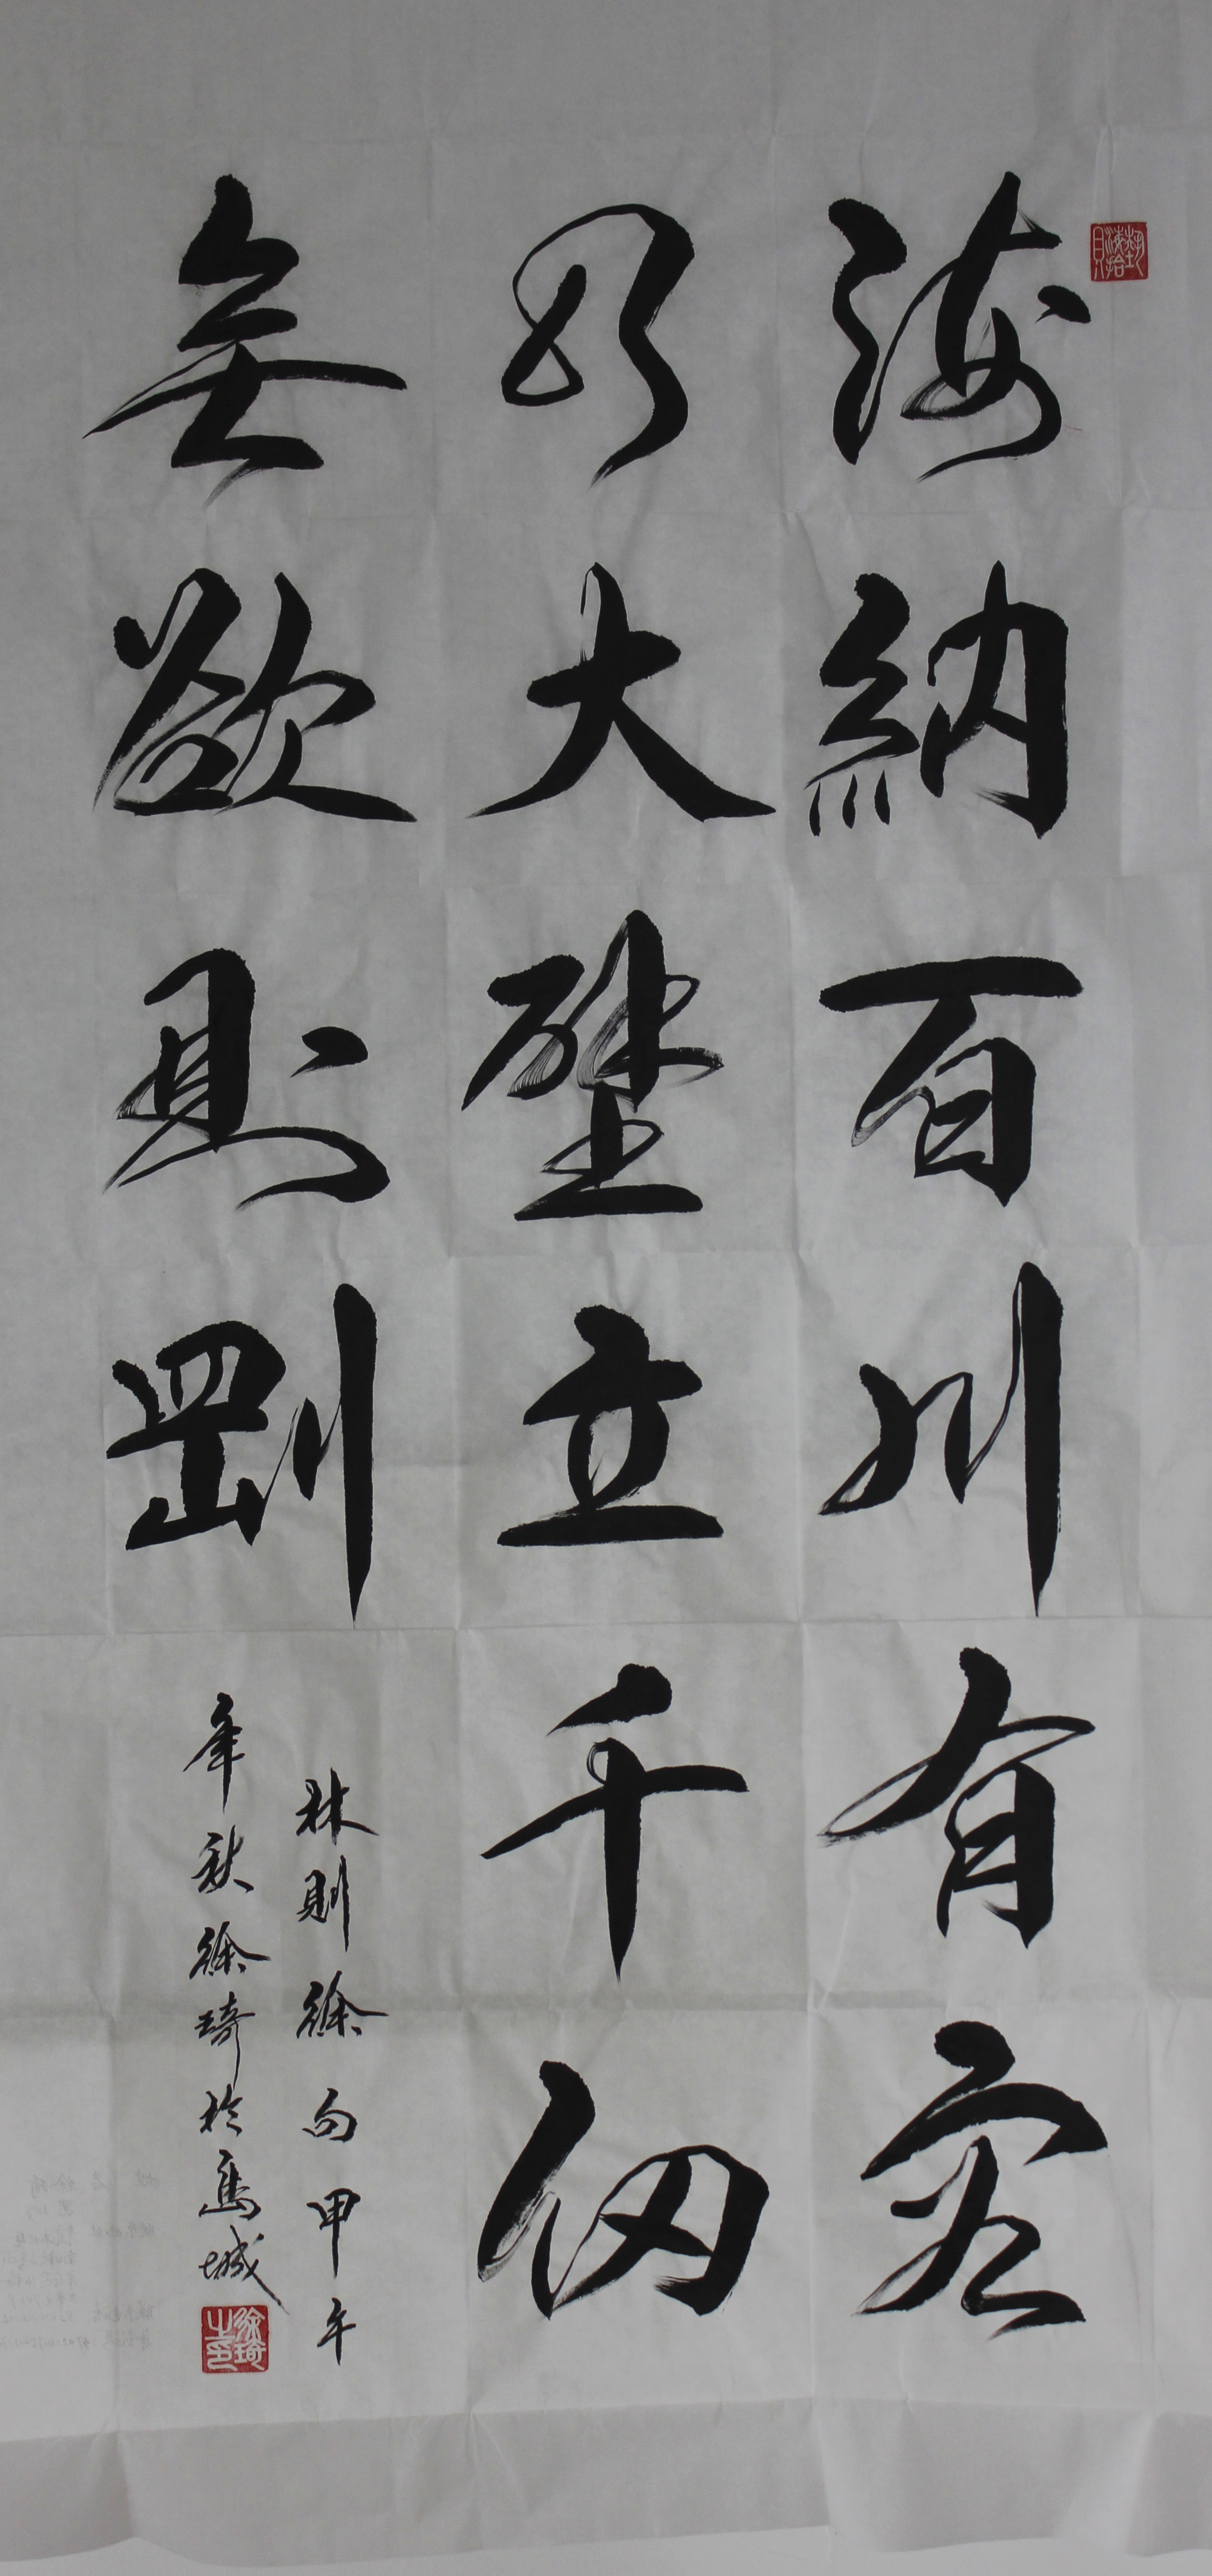 海納百川有容
乃大壁立千仞
無欲則剛
林則徐句甲午
年秋徐琦於
城
徐琦之印